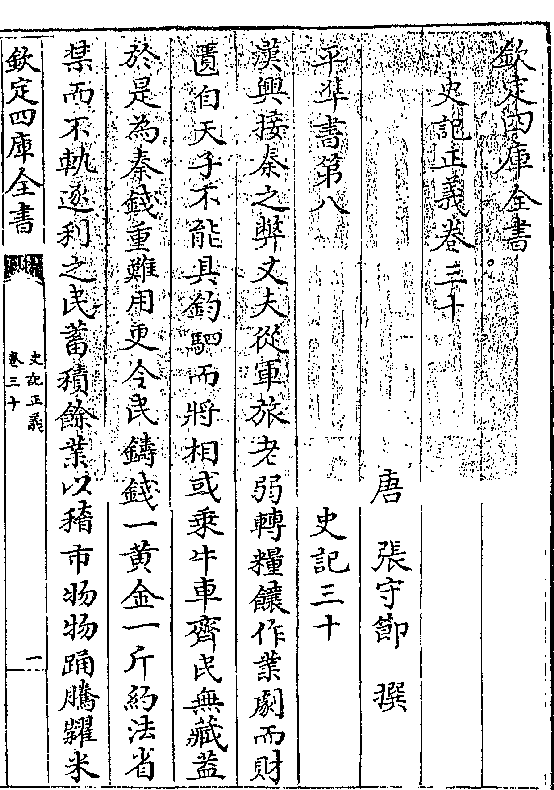 欽定四庫全書
史記正義卷三十
唐 張守節 撰
平準書第八 史記三十
漢興接秦之弊丈夫從軍旅老弱轉糧饟作業劇而財
匱自天子不能具鈞駟而將相或乘牛車齊民無藏葢
於是為秦錢重難用更令民鑄錢一黄金一斤約法省
禁而不軌逐利之民蓄積餘業以稽市物物踊騰糶米
欽定四庫全書
史記正義
卷三十
一